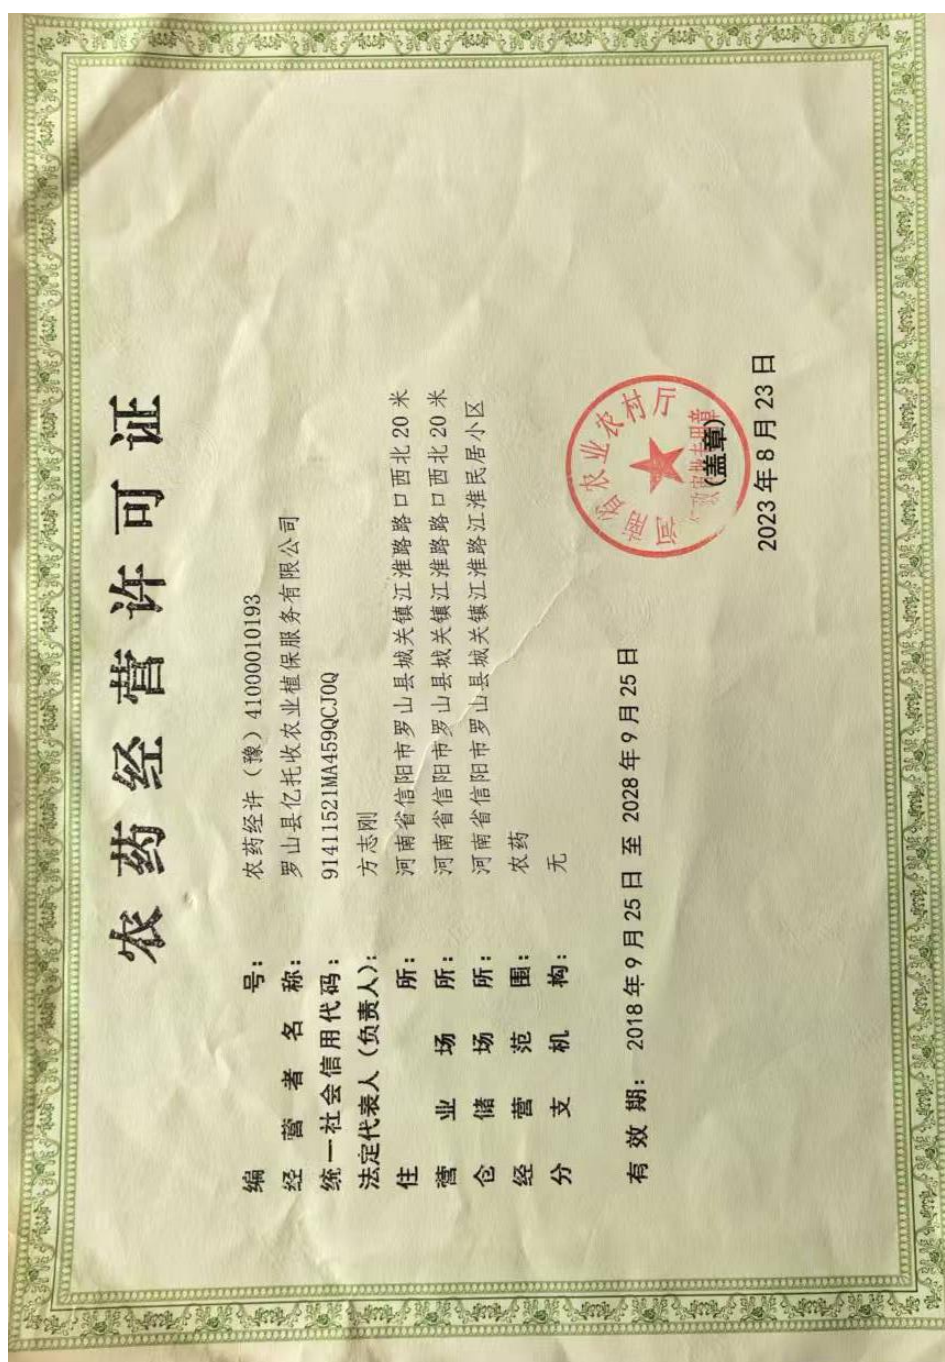 农药经营许可证
编号：农药经许（豫）41000010193
经营者名称：罗山县亿托收农业植保服务有限公司
统一社会信用代码：91411521MA459QCJ0Q
法定代表人（负责人）：方志刚
住所：河南省信阳市罗山县城关镇江淮路路口西北20米
营业场所：河南省信阳市罗山县城关镇江淮路路口西北20米
仓储场所：河南省信阳市罗山县城关镇江淮路江淮民居小区
经营范围：农药
分支机构：无
有效期：2018年9月25日至2028年9月25日
河南省农业农村厅
行政审批专用章
(盖章)
2023年8月23日